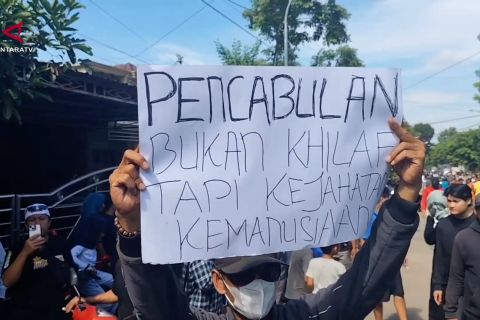 ANTARATV
PENCABULAN
BUKAN KHILAF
TAPI KEJAHATAN
KEMANUSIAAN